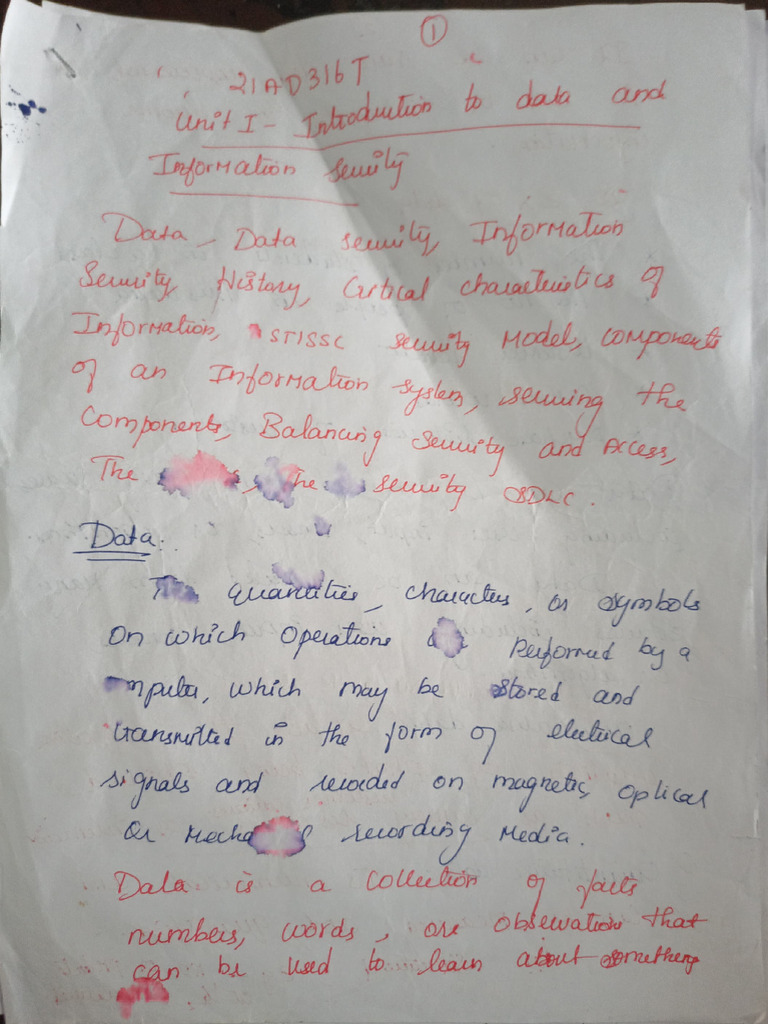 1
21AD316T
Unit I - Introduction to data and
Information security
Data, Data security, Information
Security, History, Critical characteristics of
Information, STISSC security Model, Components
of an Information system, securing the
Components, Balancing Security and Access,
The , The security SDLC.
Data:
The quantities, characters, or symbols
on which operations performed by a
mputer, which may be stored and
transmitted in the form of electrical
signals and recorded on magnetic, optical
or Mecha l recording Media.
Data is a collection of facts
numbers, words, or observations that
can be used to learn about something